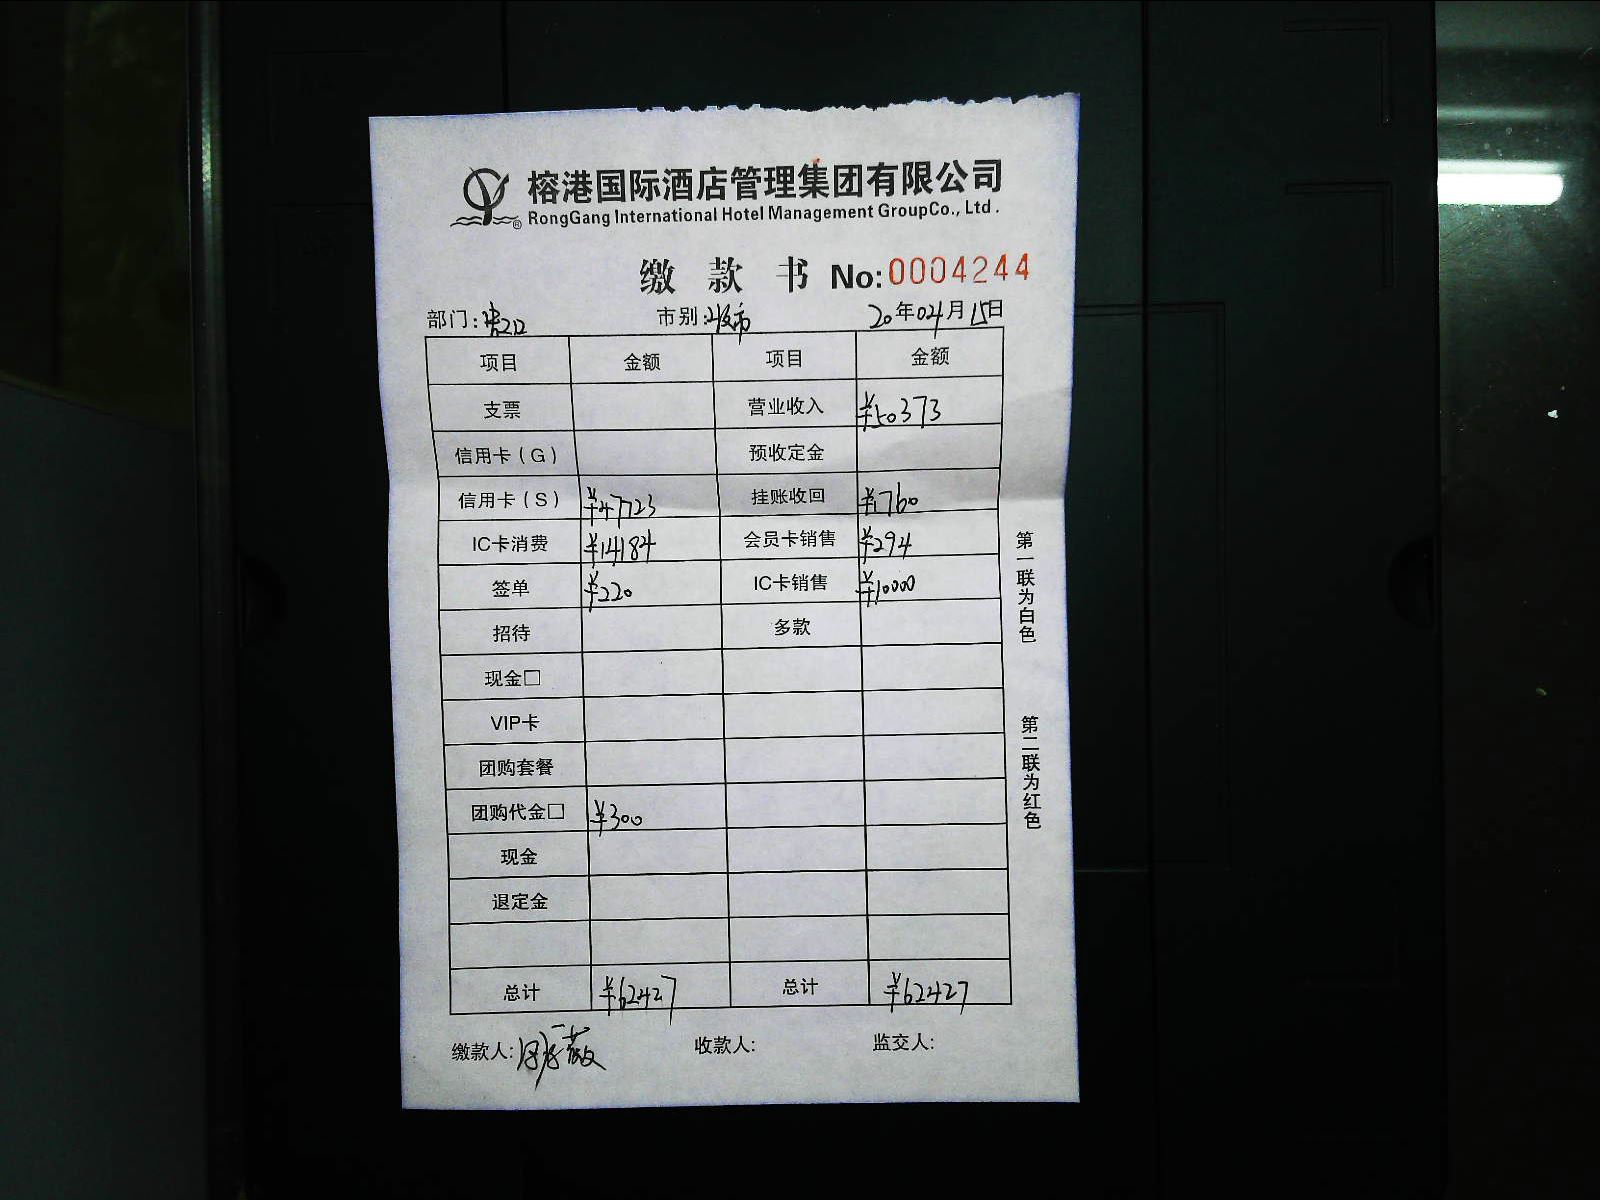 榕港国际酒店管理集团有限公司
RongGang International Hotel Management GroupCo., Ltd .
缴 款 书 No:0004244
部门: 市别: 20年04月15日
项目 金额 项目 金额
支票 营业收入 ¥50373
信用卡(G) 预收定金
信用卡(S) ¥47723 挂账收回 ¥1760
IC卡消费 ¥14184 会员卡销售 ¥294
签单 ¥220 IC卡销售 ¥10000
招待 多款
现金□
VIP卡
团购套餐
团购代金□ ¥300
现金
退定金
总计 ¥62427 总计 ¥62427
缴款人: 收款人: 监交人:
第一联为白色
第二联为红色